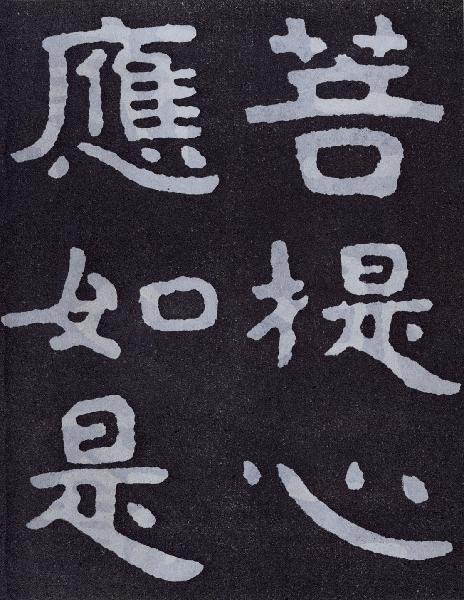 菩提心
應如是